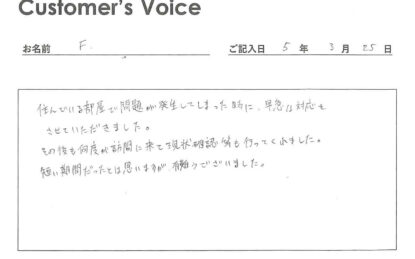 Customer's Voice
お名前 F. ご記入日 5 年 3 月 25 日
住んでいる部屋で問題が発生してしまった時に、早急な対応を
させていただきました。
その後も何度か訪問に来て現状確認等も行ってくれました。
短い期間だったとは思いますが有難うございました。